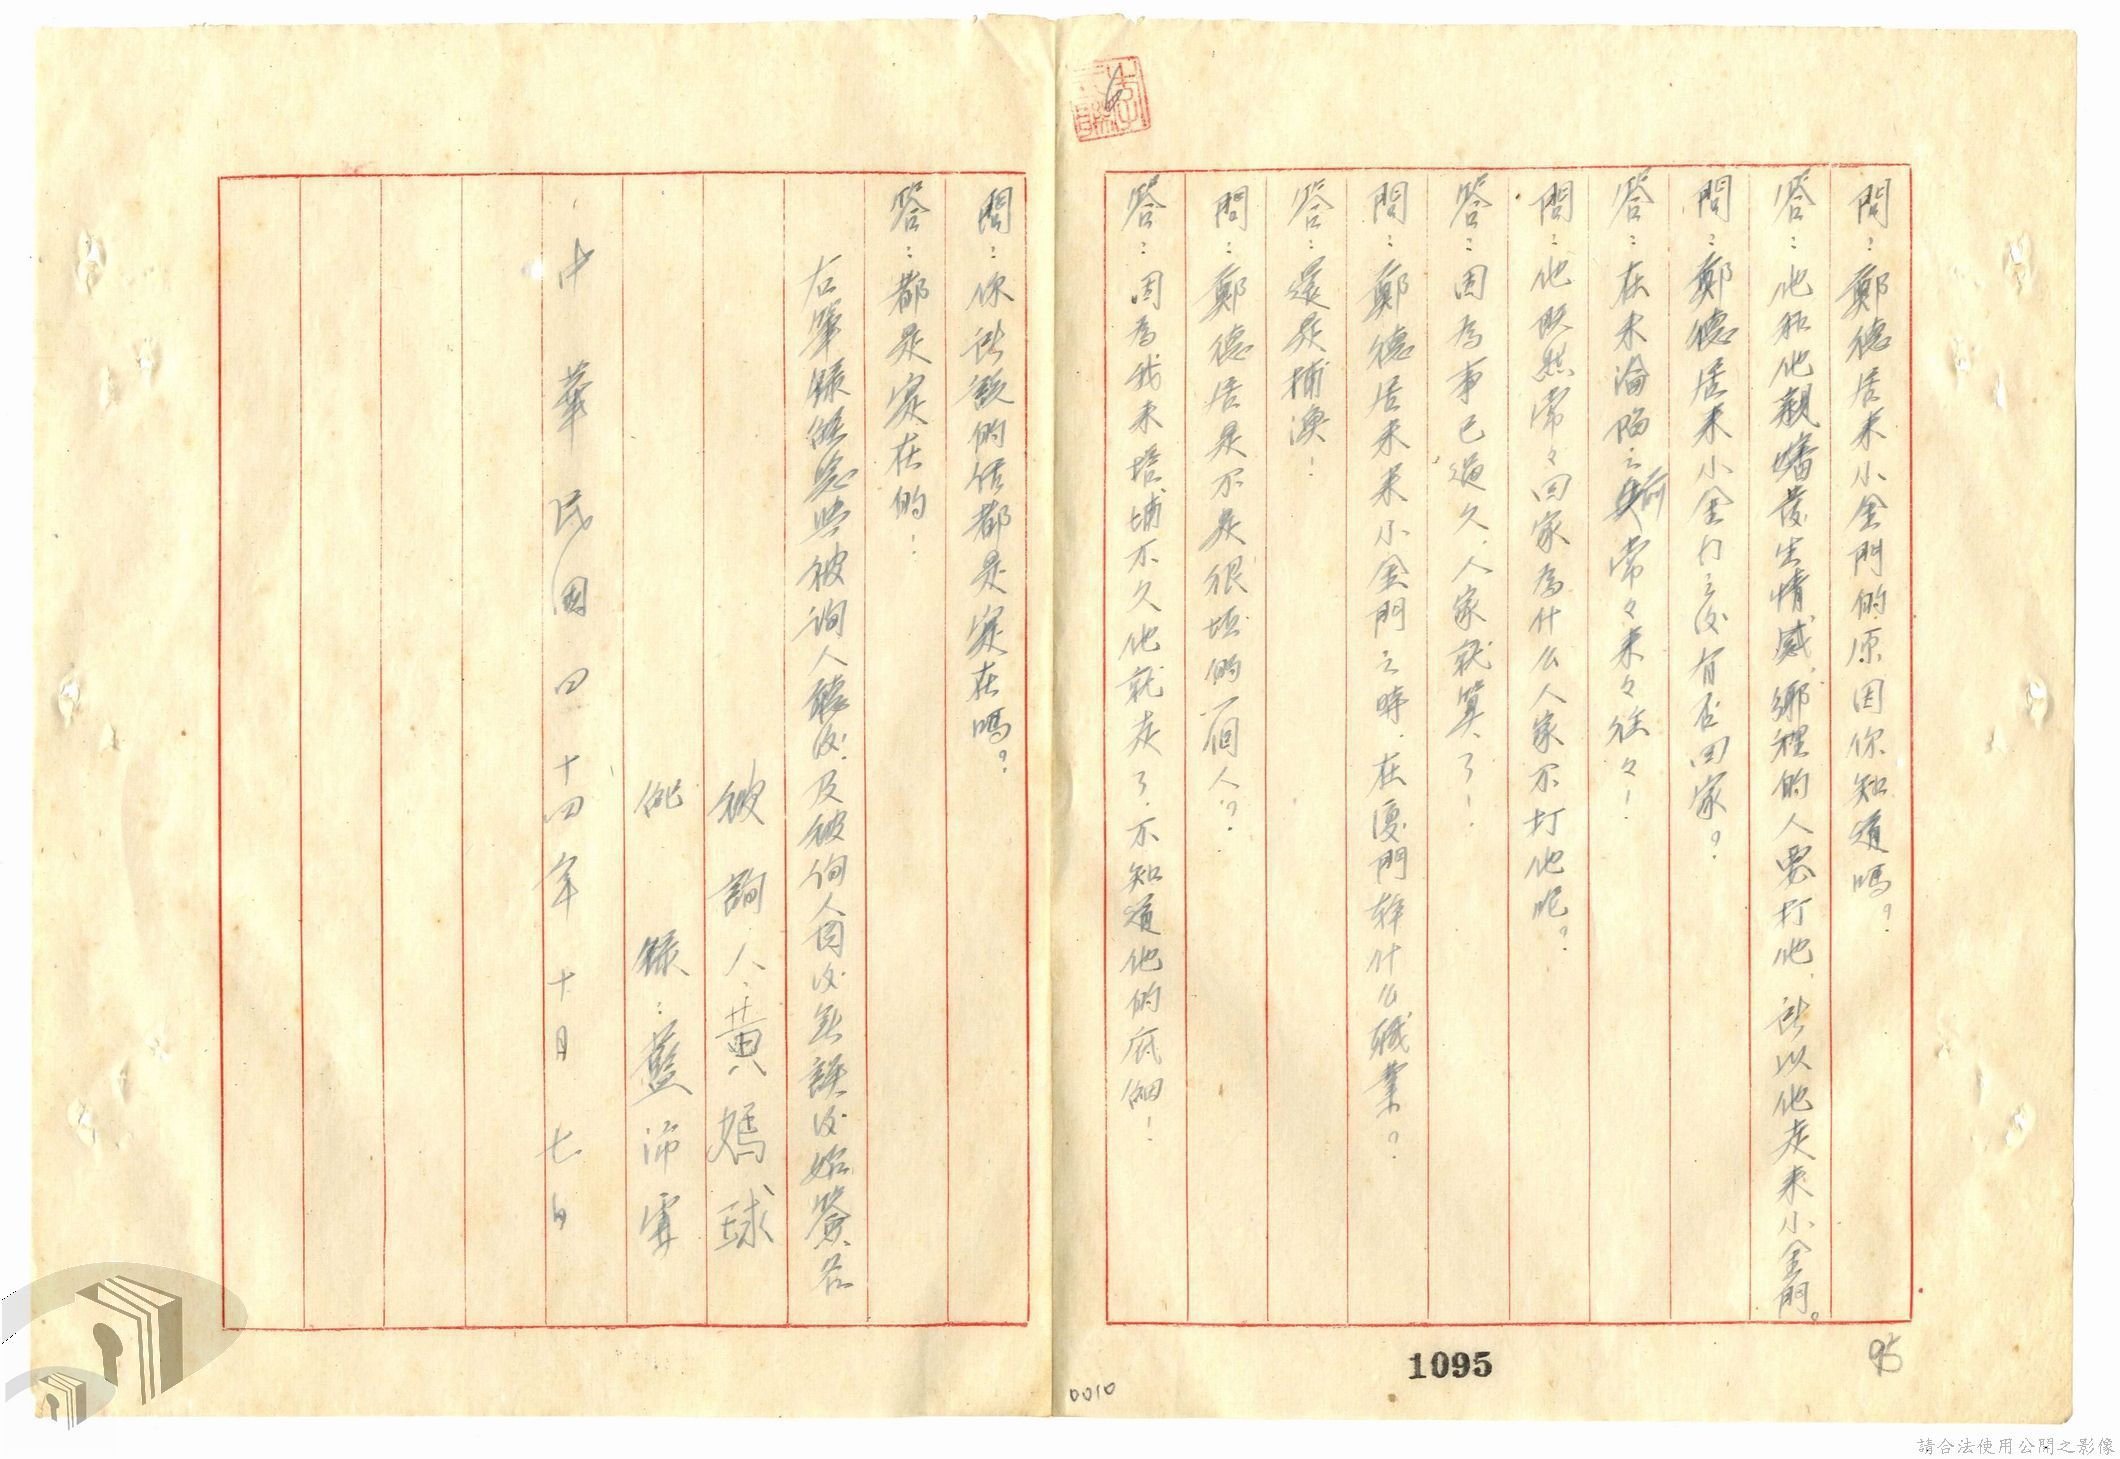 問：鄭德居來小金門的原因你知道嗎？
答：他和他親嬸發生情感，鄉裡的人要打他，所以他走來小金門。
問：鄭德居來小金門之後有否回家？
答：在未淪陷之前常々來々往々！
問：他既然常々回家為什么人家不打他呢？
答：因為事已過久，人家就算了！
問：鄭德居未來小金門之時，在廈門幹什么職業？
答：還是捕漁！
問：鄭德居是不是很壞的一個人？
答：因為我來塔埔不久他就走了，不知道他的底細！
問：你所談的話都是實在嗎？
答：都是實在的！
右筆錄經念與被詢人聽後及被詢人閱後無誤後始簽名
被詢人：黃嫣球
紀錄：藍沛霖
中華民國四十四年十月七日
1095
95
0010
請合法使用公開之影像